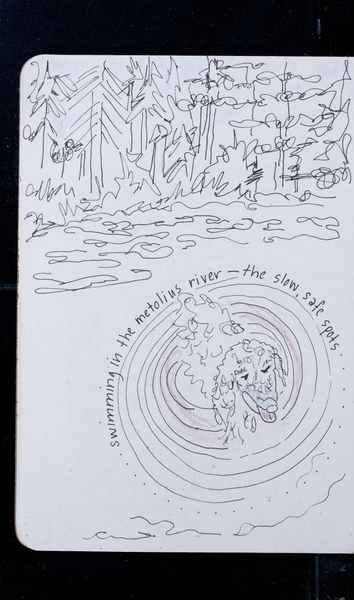 swimming in the metolius river — the slow, safe spots